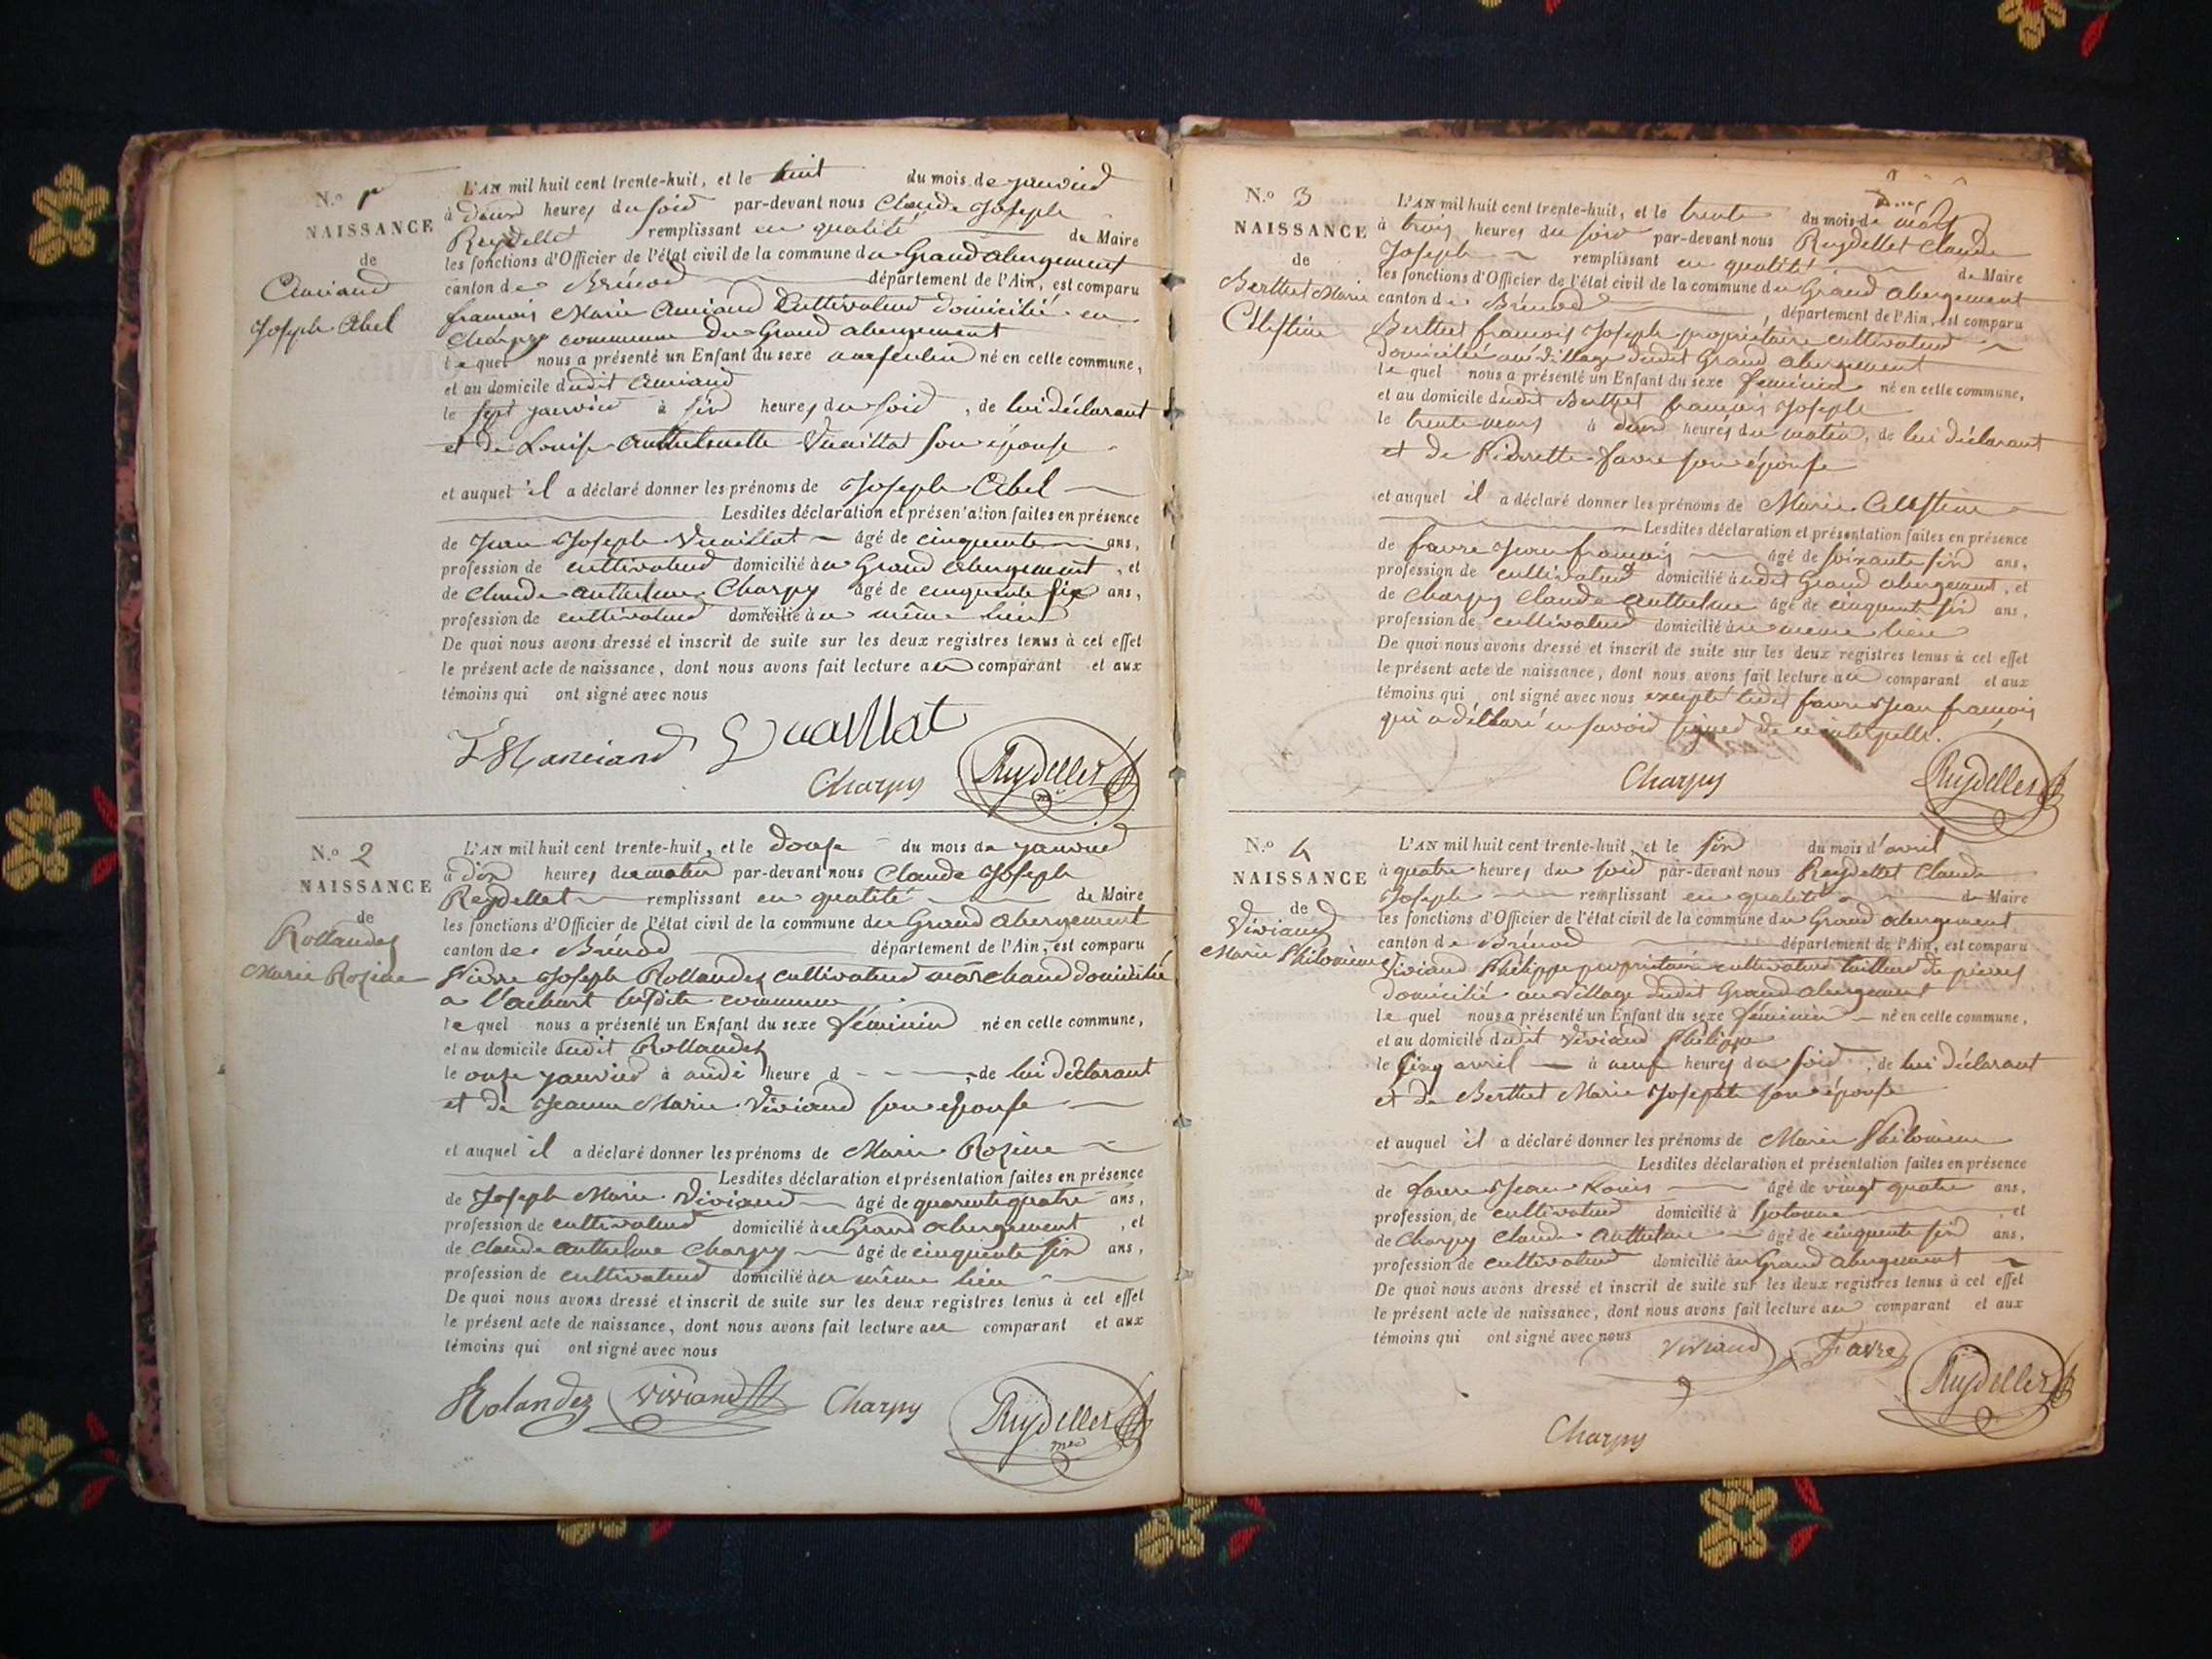 N.o 1
NAISSANCE
de
Amiand
Joseph Abel
L'AN mil huit cent trente-huit, et le huit du mois de janvier
à deux heures du soir par-devant nous Claude Joseph
Reydellet remplissant en qualité de Maire
les fonctions d'Officier de l'état civil de la commune du Grand abergement
canton de Brénod département de l'Ain, est comparu
françois Marie Amiand Cultivateur domicilié en
Charpy commune du Grand abergement
lequel nous a présenté un Enfant du sexe masculin né en cette commune,
et au domicile dudit Amiand
le sept janvier à six heures du soir, de lui déclarant
et de Louise Anthelmette Vuaillat son épouse
et auquel il a déclaré donner les prénoms de Joseph Abel
Lesdites déclaration et présentation faites en présence
de Jean Joseph Vuaillat âgé de cinquante ans,
profession de cultivateur domicilié au Grand abergement, et
de Claude anthelme Charpy âgé de cinquante six ans,
profession de cultivateur domicilié au même lieu
De quoi nous avons dressé et inscrit de suite sur les deux registres tenus à cet effet
le présent acte de naissance, dont nous avons fait lecture au comparant et aux
témoins qui ont signé avec nous
Vuaillat
Charpy Reydellet
N.o 2
NAISSANCE
de
Rollandez
Marie Rozine
L'AN mil huit cent trente-huit, et le douze du mois de janvier
à dix heures du matin par-devant nous Claude Joseph
Reydellet remplissant en qualité de Maire
les fonctions d'Officier de l'état civil de la commune du Grand abergement
canton de Brénod département de l'Ain, est comparu
Pierre Joseph Rollandez cultivateur marchand domicilié
a l'achart susdite commune
lequel nous a présenté un Enfant du sexe féminin né en cette commune,
et au domicile dudit Rollandez
le onze janvier à midi heure d - - - , de lui déclarant
et de Jeanne Marie Viviand son épouse
et auquel il a déclaré donner les prénoms de Marie Rozine
Lesdites déclaration et présentation faites en présence
de Joseph Marie Viviand âgé de quarente quatre ans,
profession de cultivateur domicilié au Grand abergement, et
de Claude anthelme Charpy âgé de cinquante six ans,
profession de cultivateur domicilié au même lieu
De quoi nous avons dressé et inscrit de suite sur les deux registres tenus à cet effet
le présent acte de naissance, dont nous avons fait lecture au comparant et aux
témoins qui ont signé avec nous
Rolandez Viviand Charpy Reydellet
N.o 3
NAISSANCE
de
Berthet Marie
Célestine
L'AN mil huit cent trente-huit, et le trente du mois de mars
à trois heures du soir par-devant nous Reydellet Claude
Joseph remplissant en qualité de Maire
les fonctions d'Officier de l'état civil de la commune du Grand abergement
canton de Brénod, département de l'Ain, est comparu
Berthet françois Joseph propriétaire cultivateur
domicilié au village dudit Grand abergement
lequel nous a présenté un Enfant du sexe féminin né en cette commune,
et au domicile dudit Berthet françois Joseph
le trente mars à deux heures du matin, de lui déclarant
et de Pierrette favre son épouse
et auquel il a déclaré donner les prénoms de Marie Célestine
Lesdites déclaration et présentation faites en présence
de favre Jean françois âgé de soixante six ans,
profession de cultivateur domicilié audit Grand abergement, et
de Charpy Claude Anthelme âgé de cinquante six ans,
profession de cultivateur domicilié au même lieu
De quoi nous avons dressé et inscrit de suite sur les deux registres tenus à cet effet
le présent acte de naissance, dont nous avons fait lecture au comparant et aux
témoins qui ont signé avec nous excepté ledit favre Jean françois
qui a déclaré ne savoir signer de ce interpellé.
Charpy Reydellet
N.o 4
NAISSANCE
de
Viviand
Marie Philomène
L'AN mil huit cent trente-huit, et le six du mois d'avril
à quatre heures du soir par-devant nous Reydellet Claude
Joseph remplissant en qualité de Maire
les fonctions d'Officier de l'état civil de la commune du Grand abergement
canton de Brénod département de l'Ain, est comparu
Viviand Philippe propriétaire cultivateur tailleur de pierres
domicilié au village dudit Grand abergement
lequel nous a présenté un Enfant du sexe féminin né en cette commune,
et au domicile dudit Viviand Philippe
le cinq avril à neuf heures du soir, de lui déclarant
et de Berthet Marie Josephte son épouse
et auquel il a déclaré donner les prénoms de Marie Philomène
Lesdites déclaration et présentation faites en présence
de favre Jean Louis âgé de vingt quatre ans,
profession de cultivateur domicilié à Sotonne, et
de Charpy Claude Anthelme âgé de cinquante six ans,
profession de cultivateur domicilié au Grand abergement
De quoi nous avons dressé et inscrit de suite sur les deux registres tenus à cet effet
le présent acte de naissance, dont nous avons fait lecture au comparant et aux
témoins qui ont signé avec nous Viviand Favre
Reydellet
Charpy